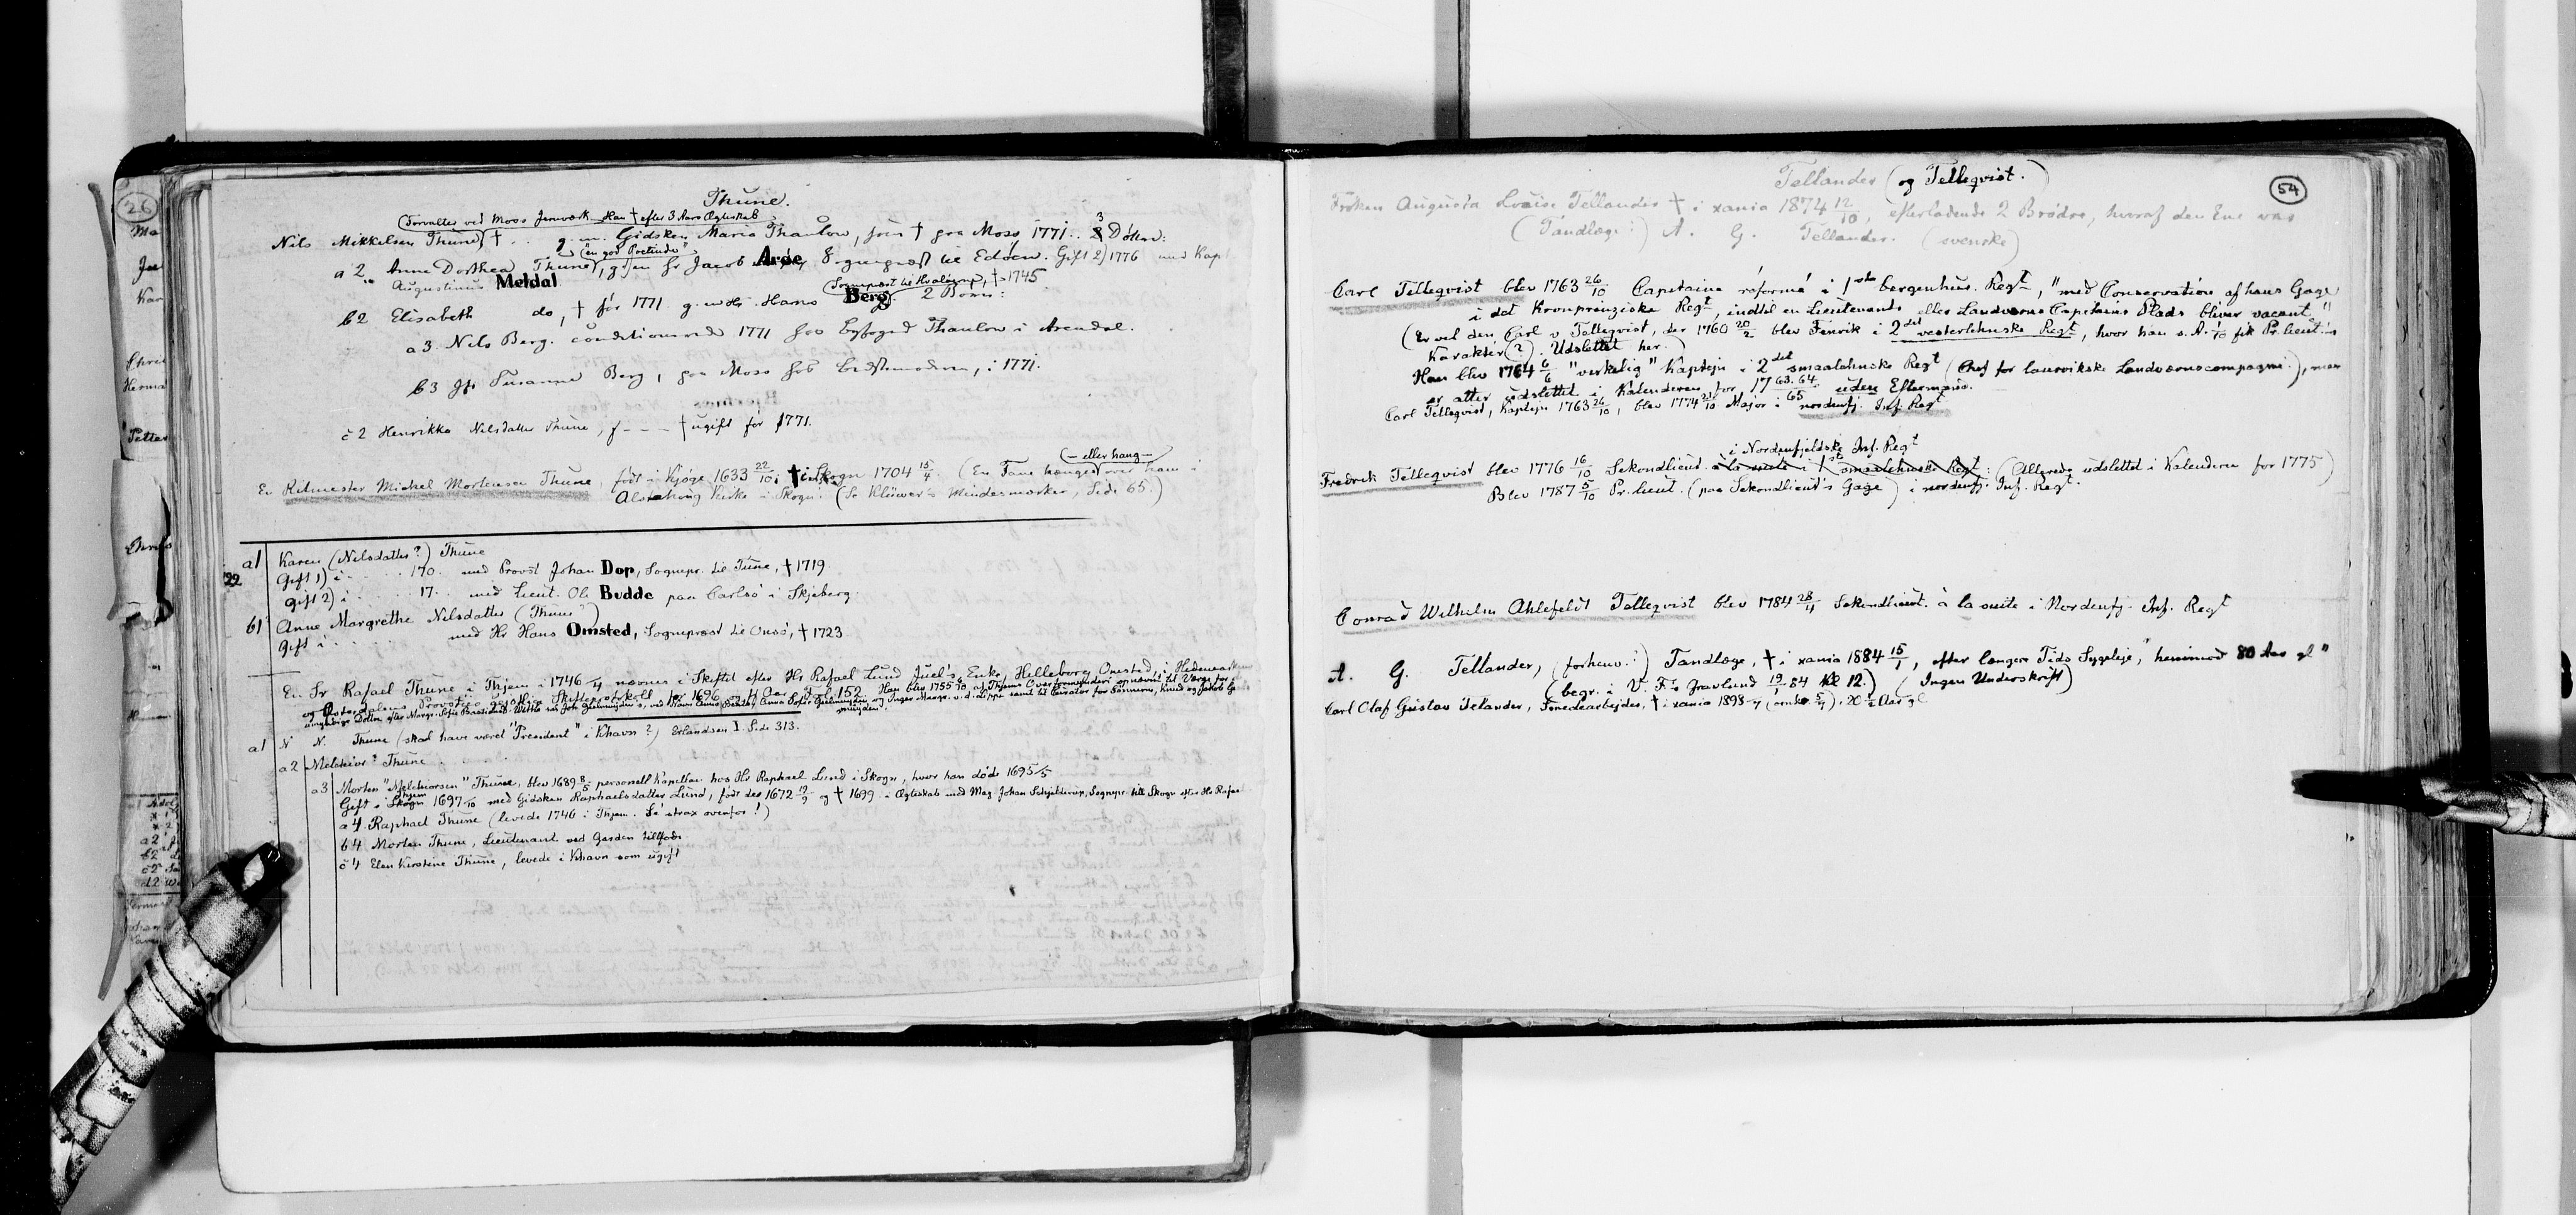 26
Thune.
(Forvalter ved Moss Jernværk. Han † efter 3 Aars Ægteskab
Nils Mikkelsen Thune, † . . g. m. Gidsken Maria Thaulow, som † paa Moss 1771. 3 Døttre:
("en god Poetinde")
a 2 Anne Dorthea Thune, g. m. Hr Jacob Arøe, Sogneprest til Edøen. Gift 2) 1776 med Kapt
Augustinus Meldal
Sogneprest til Hvaløerne, † 1745
b2 Elisabeth do, † før 1771. g. m. Hr. Hans Berg 2 Børn:
a 3. Nils Berg. conditionered 1771 hos Byfoged Thaulow i Arendal.
b3 Jfr Susanne Berg, paa Moss hos Bedstemoderen, i 1771.
c 2 Henrikke Nilsdatter Thune, f - - - † ugift før 1771.
(- eller hang -)
En Ritmester Michel Mortensen Thune, født i Kjøge 1633 22/10, † i Skogn 1704 15/4. (En Fane hænger over ham i
Alstahoug Kirke i Skogn. (Se Klüwer's Mindesmærker, Side 65.)
a1 Karen (Nilsdatter?) Thune
Gift 1) i . . . . 170. med Provst Johan Dop, Sognepr. til Tune, † 1719.
gift 2) i . . . . 17. . med Lieut. Ole Budde paa Carlsø i Skjeberg.
b1 Anne Margrethe Nilsdatter (Thune?)
gift i . . . . med Hr Hans Omsted, Sogneprest til Onsø, † 1723
En Sr Rafael Thune i Thjem i 1746 /4 nævnes i Skiftet efter Hr Rafael Lund Juel's Enke, Hilleborg Omsted, i Hedemarkens
og Østerdalens Provsties gejstlige Skifteprotokol for 1696
a1 N N. Thune (skal have været "President" i Khavn?) Erlandsen I. Side 313.
a2 Melchior? Thune . . . .
a3 Morten "Melchiorsen" Thune, blev 1689 8/5 personell Kapellan hos Hr Raphael Lund i Skogn, hvor han døde 1695 /5
Gift i Skogn 1697 /10 med Gidsken Raphaelsdatter Lund, født der 1672 12/9 og † 1699 i Ægteskab med Mag Johan Schjelderup, Sognepr. till Skogn efter Hr Rafael
a 4. Raphael Thune (levede 1746 i Thjem. Se strax ovenfor!)
b 4 Morten Thune, Lieutenant ved Garden tillfods.
c 4 Elen Kirstine Thune, levede i Khavn som ugift
54
Tellander (og Tellequist.)
Frøken Augusta Lovise Tellander † i xania 1874 12/10, efterladende 2 Brødre, hvoraf den Ene var
(Tandlæge:) A. G. Tellander. (svenske)
Carl Tellequist blev 1763 26/10 Capitaine réformé i 1ste bergenhus. Regt, "med Conservation af hans Gage
i det Kronprinziske Regt, indtil en Lieutenants eller Landværns Capitains Plads bliver vacant."
(Er vel den Carl v. Tellequist, der 1760 20/2 blev Fenrik i 2det vesterlehnske Regt, hvor han s. A. 1/10 fik Pr. lieut's
Karakter (?). Udslettet her.)
Han blev 1764 6/6 "virkelig" Kaptejn i 2det smaalehnske Regt (Chef for laurvikske Landværnscompagni.), men
er atter udslettet i Kalenderen for 1763. 64. 65 uden Eftermand.
Carl Tellequist, Kaptejn 1763 26/10, blev 1774 21/10 Major i nordenfj. Inf. Regt
i Nordenfjeldske Inf. Regt
Fredrik Tellequist blev 1776 16/10 Sekondlieut. à la suite i 1st smaalehnske Regt: (Allerede udslettet i Kalenderen for 1775)
Blev 1787 5/10 Pr. lieut. (paa Sekondlieut's Gage) i nordenfj. Inf. Regt.
Conrad Wilhelm Ahlefeldt Tellequist blev 1784 28/4 Sekondlieut. à la suite i Nordenfj. Inf. Regt
A. G. Tellander, (forhenv.?) Tandlæge, † i xania 1884 15/1, efter længere Tids Sygeleje, "henimod 80 Aar gl"
(begr. i V. F.s Gravlund 19/1 84 Kl 12.) (Ingen Underskrift)
Carl Olaf Gustav Telander, Smedearbejder, † i xania 1898